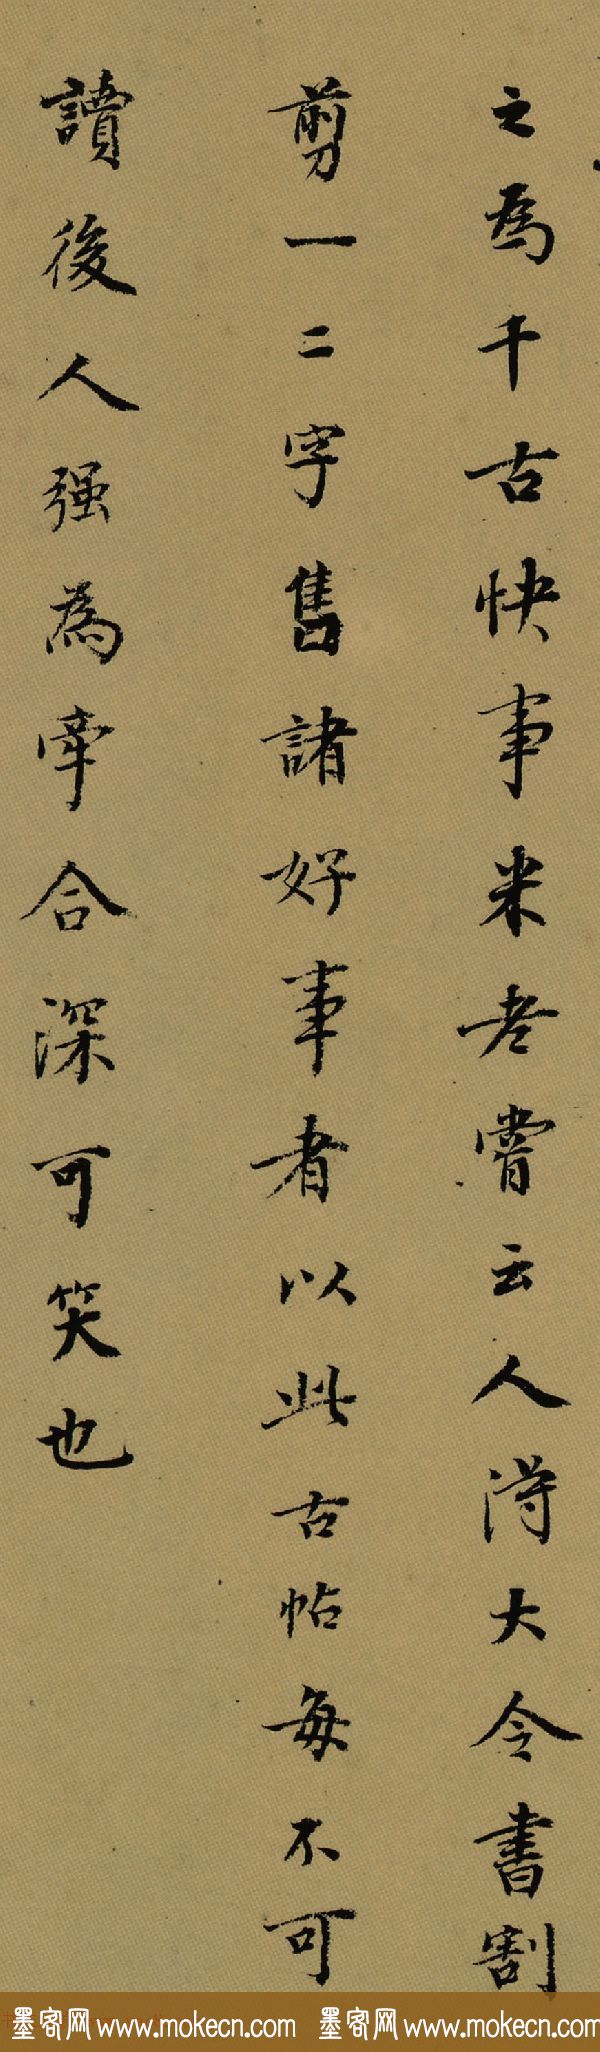 之為千古快事米老嘗云人得大令書割
剪一二字售諸好事者以此古帖每不可
讀後人强為牽合深可笑也
墨客网 www.mokecn.com 墨客网 www.mokecn.com